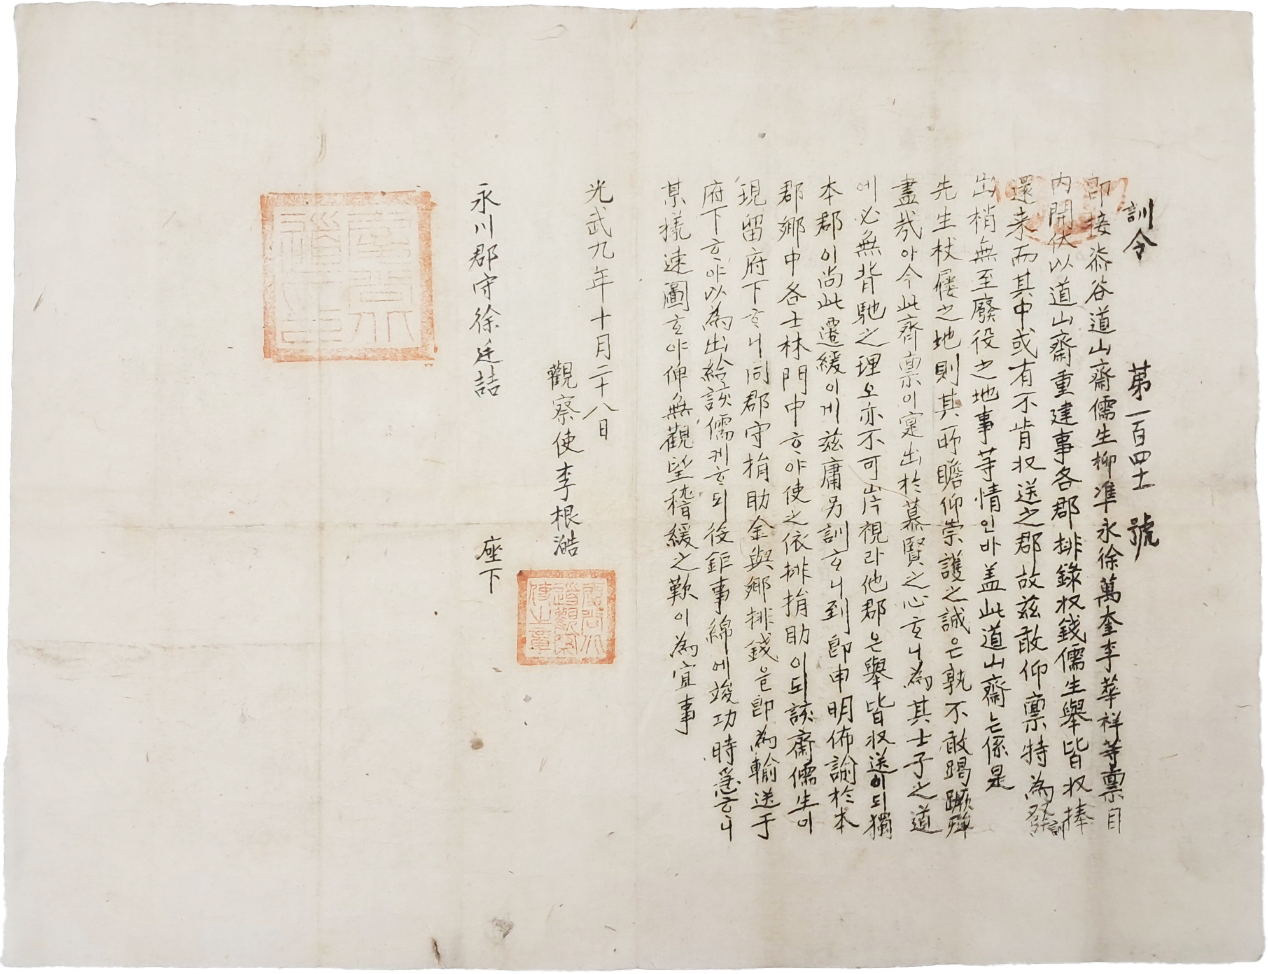 訓令 第一百四十 號
卽接漆谷道山齋儒生柳準永徐萬奎李華祥等稟目
內開伏以道山齋重建事各郡排錄收錢儒生擧皆收捧
還來而其中或有不肯收送之郡故玆敢仰稟特爲發訓
出梢無至廢役之地事等情인바盖此道山齋는係是
先生杖屨之地則其所瞻仰崇護之誠은孰不敢竭蹶殫
盡哉아今此齊稟이寔出於慕賢之心하니爲其士子之道
에必無背馳之理오亦不可岸視라他郡은擧皆收送이되獨
本郡이尙此遷緩이게玆庸另訓하니到卽申明佈諭於本
郡鄕中各士林門中하야使之依排捐助이되該齋儒生이
現留府下하니同郡守捐助金與鄕排錢을卽爲輸送于
府下하야以爲出給該儒케하되役鉅事綿에竣功時急하니
某㨾速圖하야俾無觀望稽緩之歎이爲宜事
光武九年十月二十八日
觀察使李根澔
永川郡守徐廷喆 座下